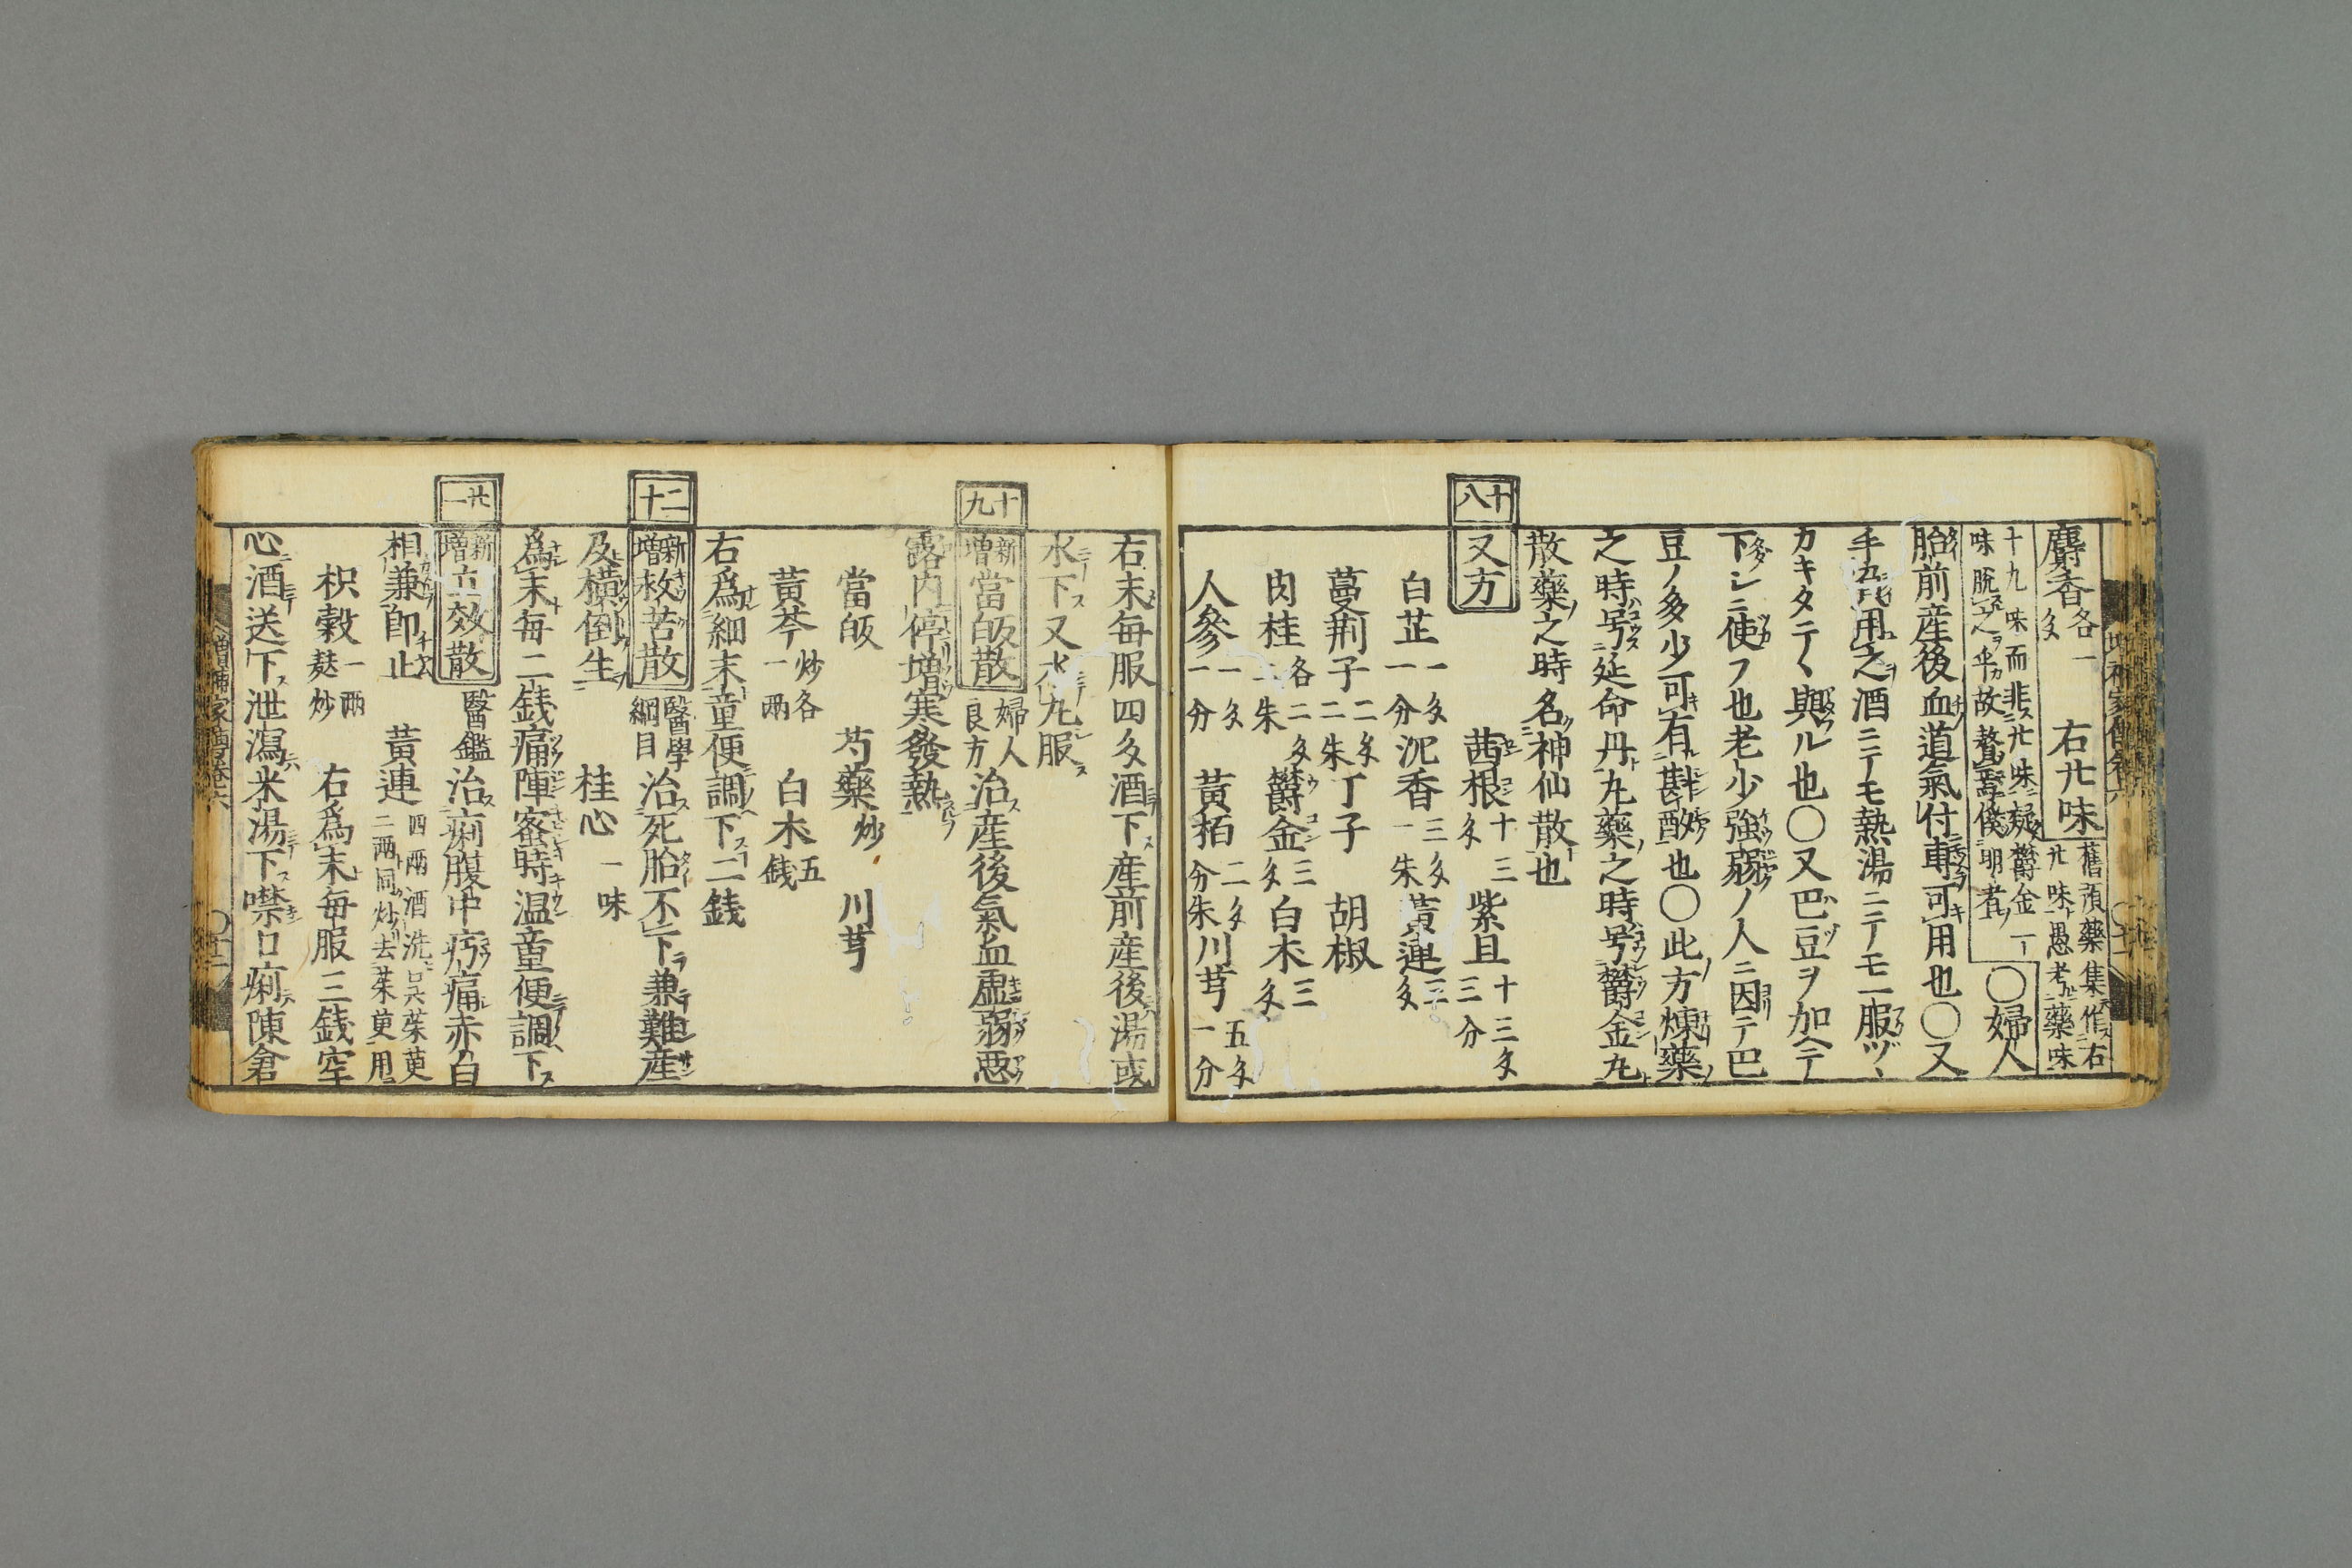 麝香各一匁　右廿味　舊須藥集作右廿味愚考藥味
十九味而非廿味疑欝金一味脱之乎故 明者　〇婦人
胎前産後血道氣付專可用也〇又
手 用之酒ニテモ熱湯ニテモ一服ヅヽ
カキタテヽ與ル也〇又巴豆ヲ加ヘテ
下シニ使フ也老少強弱ノ人ニ因テ巴
豆ノ多少可有斟酌也〇此方煉藥
之時号延命丹丸藥之時号欝金丸
散藥之時名神仙散也
十八
又方　茜根十三匁　紫旦十三匁三分
白芷一匁一分　沉香三匁一朱　黃連三匁
蔓荊子二匁二朱　丁子　胡椒
肉桂各二匁二朱　欝金三匁　白朮三匁
人參一匁一分　黃栢二匁分朱　川芎五匁一分
右末毎服四匁酒下産前産後湯或
水下又水丸服
十九
新増當皈散　婦人良方　治産後氣血虛弱惡
露内停增寒發熱
當皈　芍藥炒　川芎
黃芩炒各一兩　白朮五錢
右爲細末童便調下二錢
二十
新増救苦散　醫學綱目　治死胎不下兼難産
及橫倒生　桂心一味
爲末毎二錢痛陣密時温童便調下
廿一
新増立效散　醫鑑　治痢腹中㽲痛赤白
相兼即止　黃連四兩酒洗吳茱萸二兩同炒去茱萸用
枳穀一兩麸炒　右爲末毎服三錢空
心酒送下泄瀉米湯下噤口痢陳倉